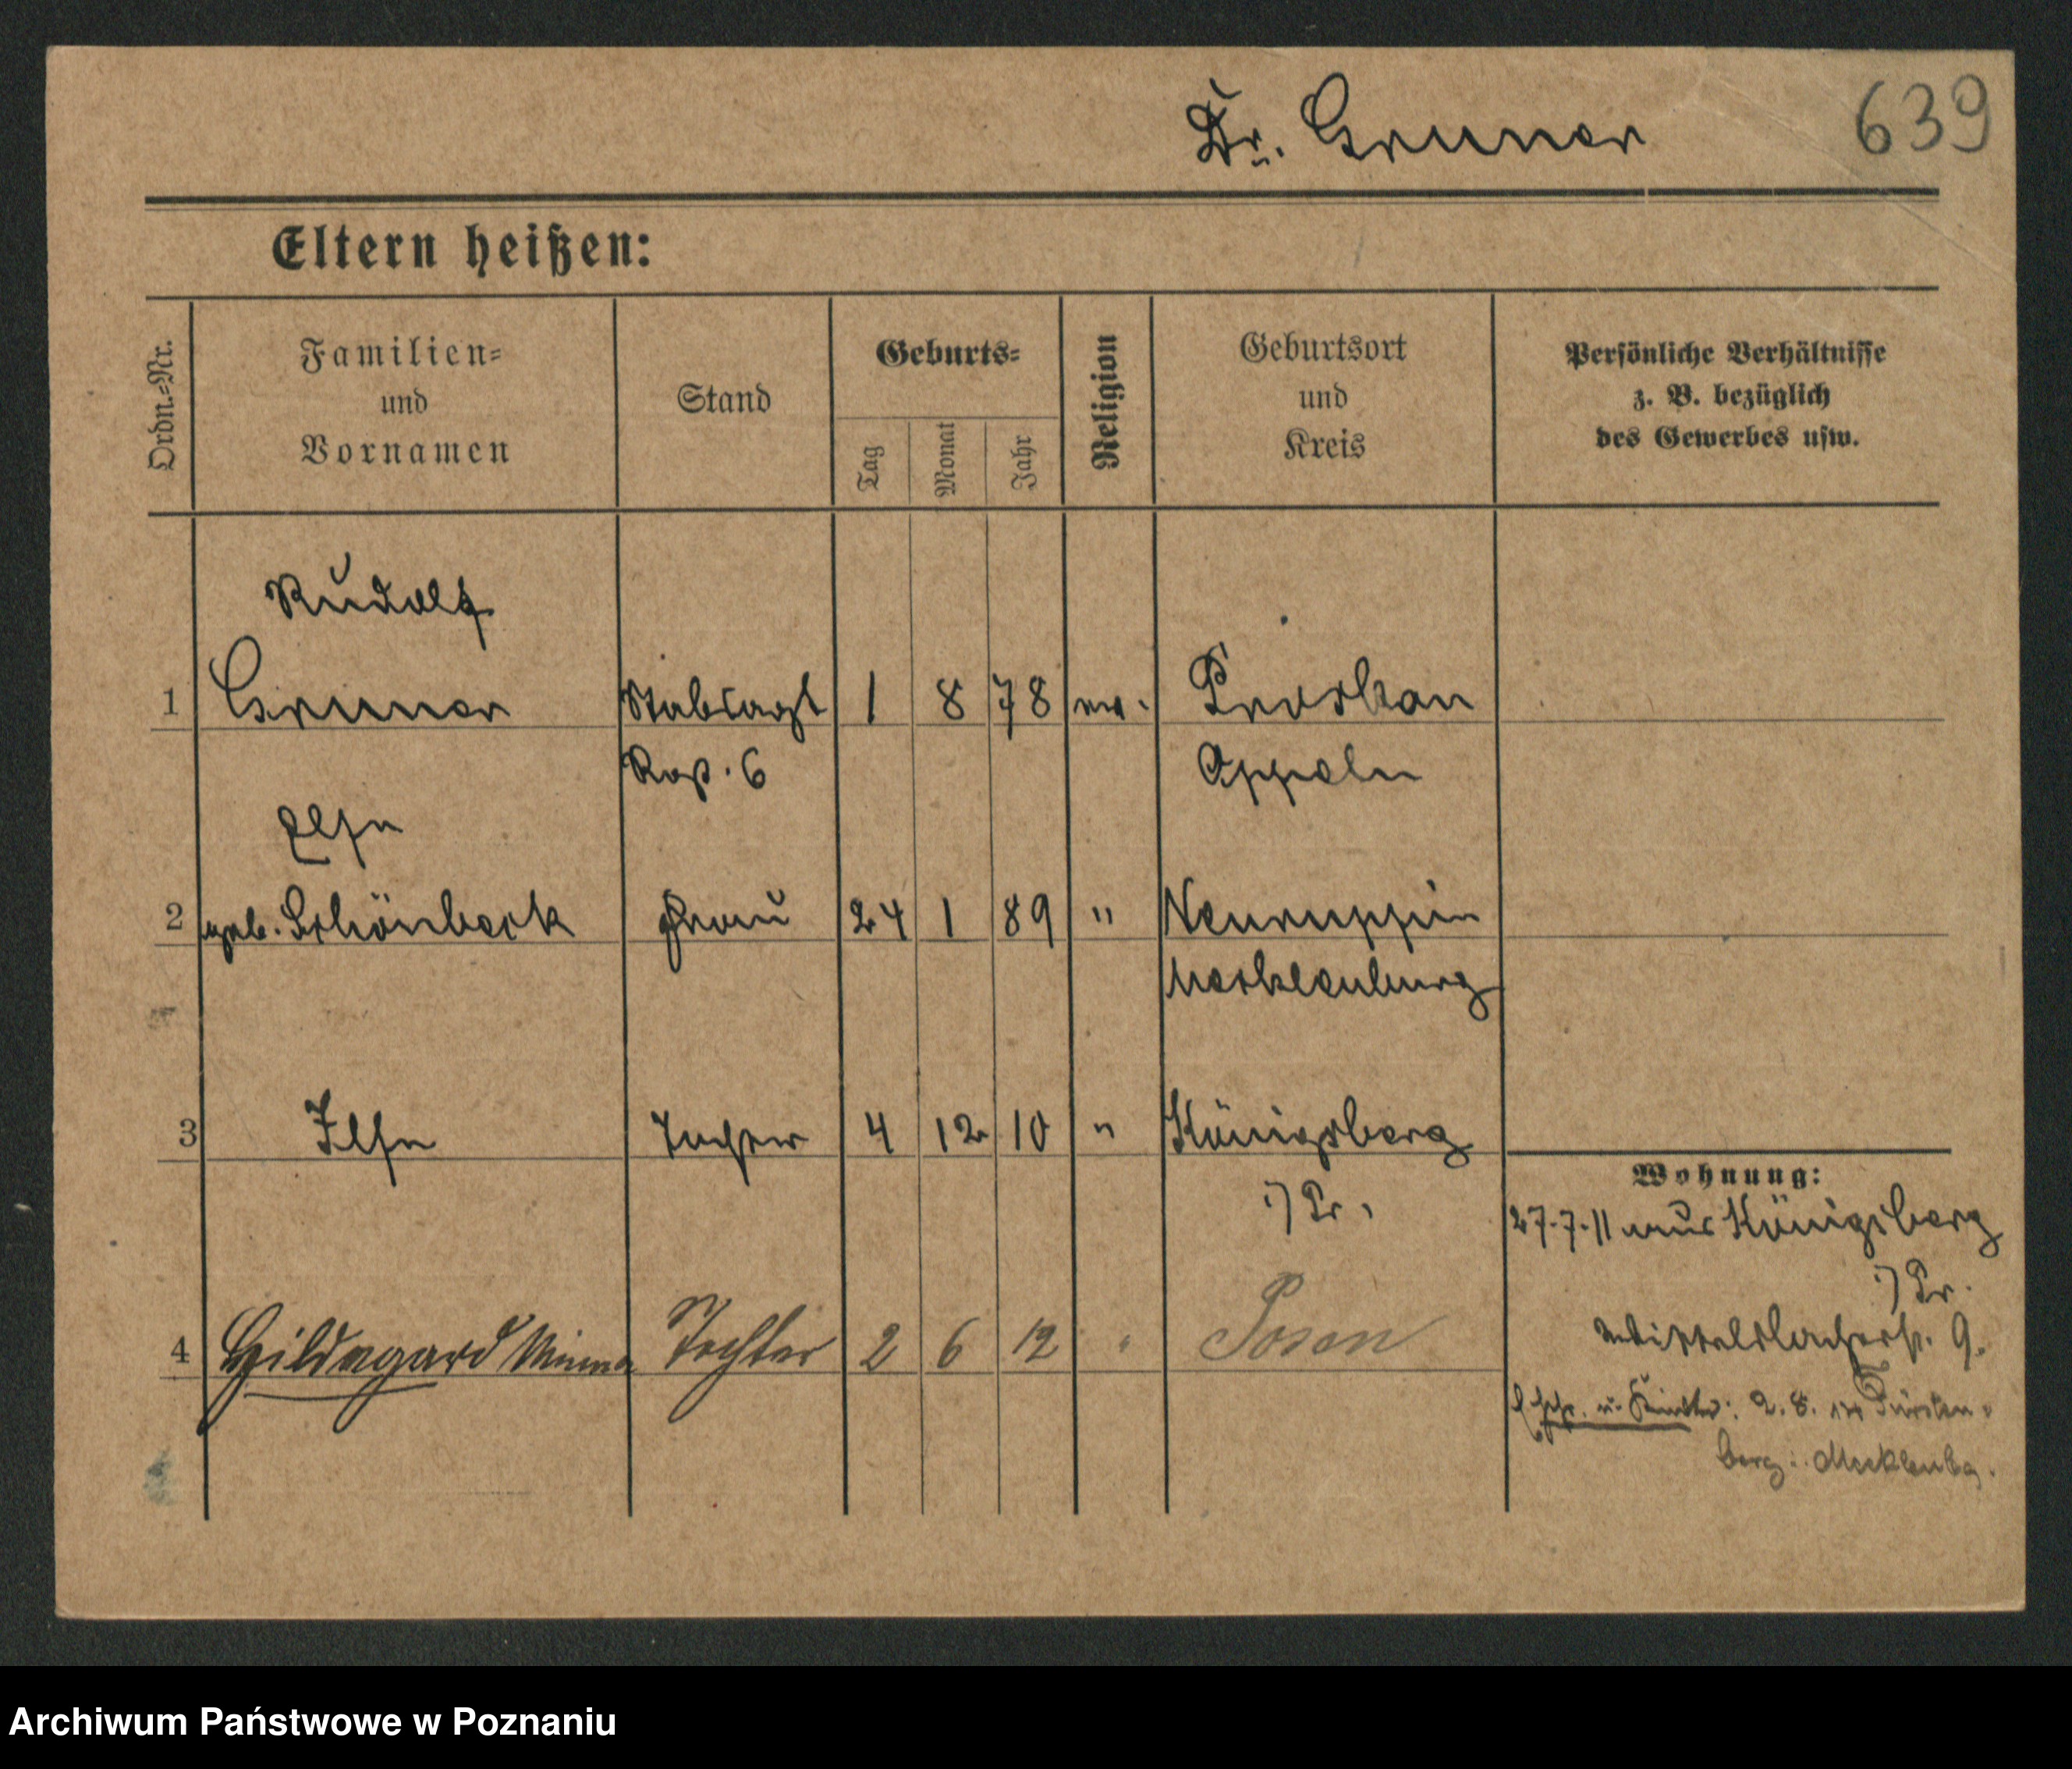 Dr. Gruner 639
Eltern heißen:
Ordn.-Nr.
Familien- und Vornamen
Stand
Geburts-
Tag Monat Jahr
Religion
Geburtsort und Kreis
Persönliche Verhältnisse z. B. bezüglich des Gewerbes usw.
Rudolf
1 Gruner Stabsarzt 1 8 78 ev. Proskau
6 Oppeln
Else
2 geb. Schönbeck Frau 24 1 89 " Neuruppin
Mecklenburg
3 Ilse Tochter 4 12 10 " Königsberg
i/Pr.
Wohnung:
27.7.11 aus Königsberg
i/Pr.
4 Hildegard Minna Tochter 2 6 12 " Posen
Wittelsbacherstr. 9.
Ehefr. u. Kinder: 2.8. Fürsten-
berg i. Mecklenbg.
Archiwum Państwowe w Poznaniu